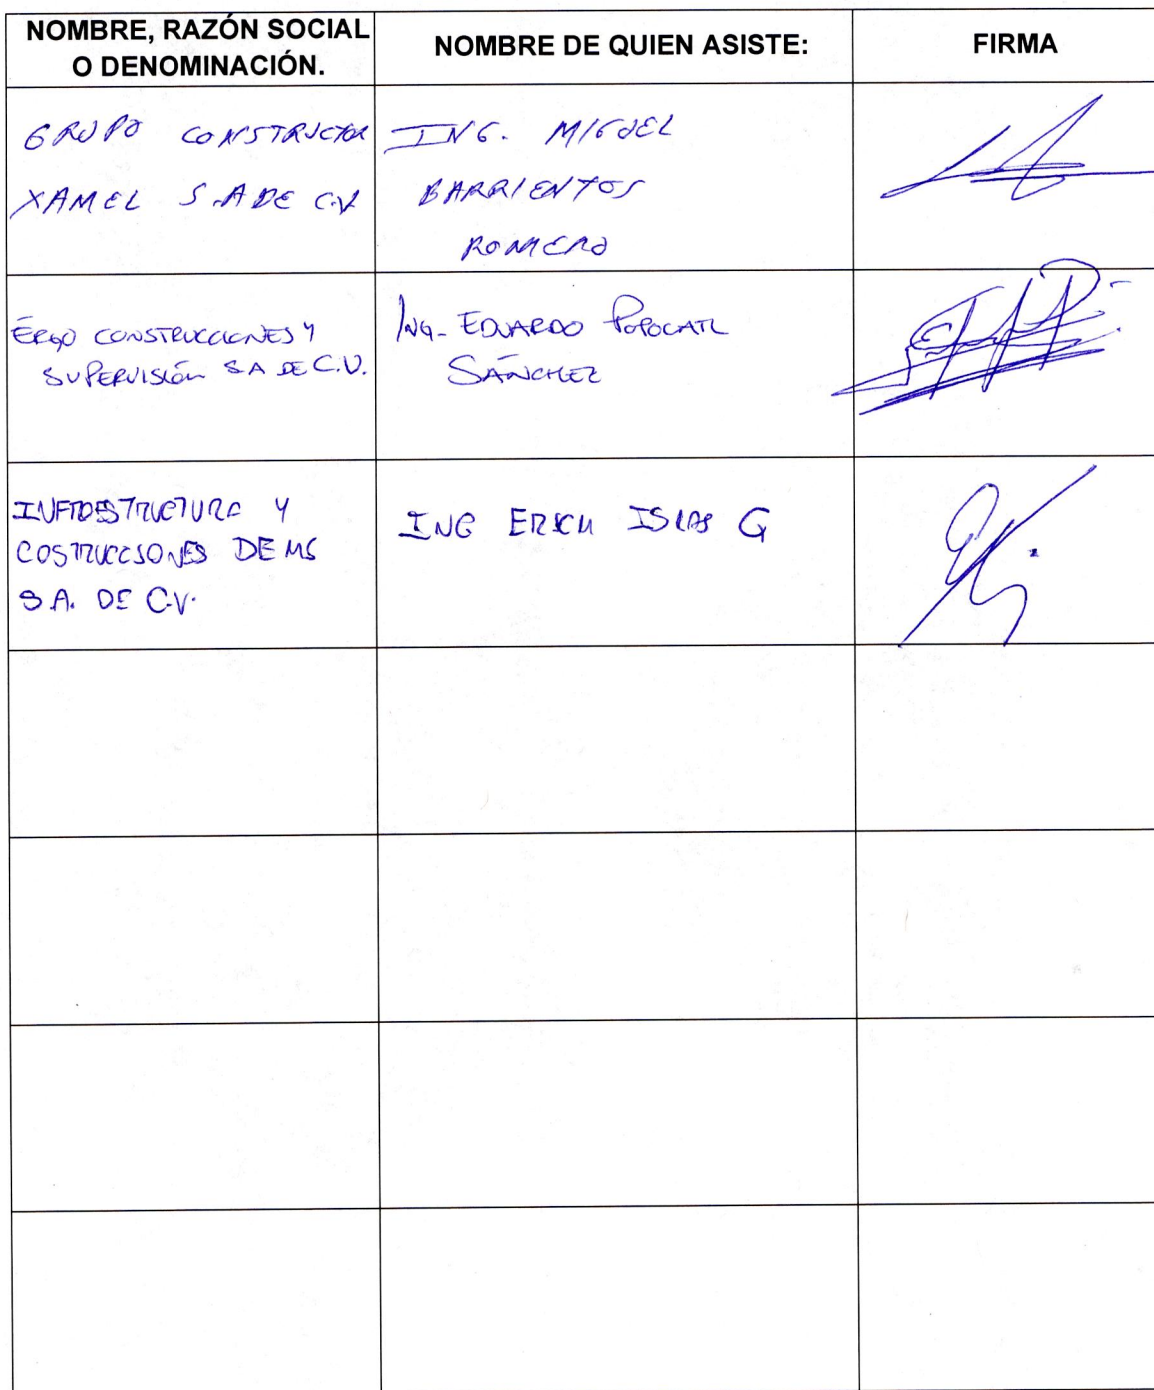 NOMBRE, RAZÓN SOCIAL
O DENOMINACIÓN.
NOMBRE DE QUIEN ASISTE:
FIRMA
GRUPO CONSTRUCTOR
XAMEL S.A DE C.V.
ING. MIGUEL
BARRIENTOS
ROMERO
ERGO CONSTRUCCIONES Y
SUPERVISIÓN SA DE C.V.
ING. EDUARDO POPOCATL
SÁNCHEZ
S.A. DE C.V.
ING ERICH ISLAS G